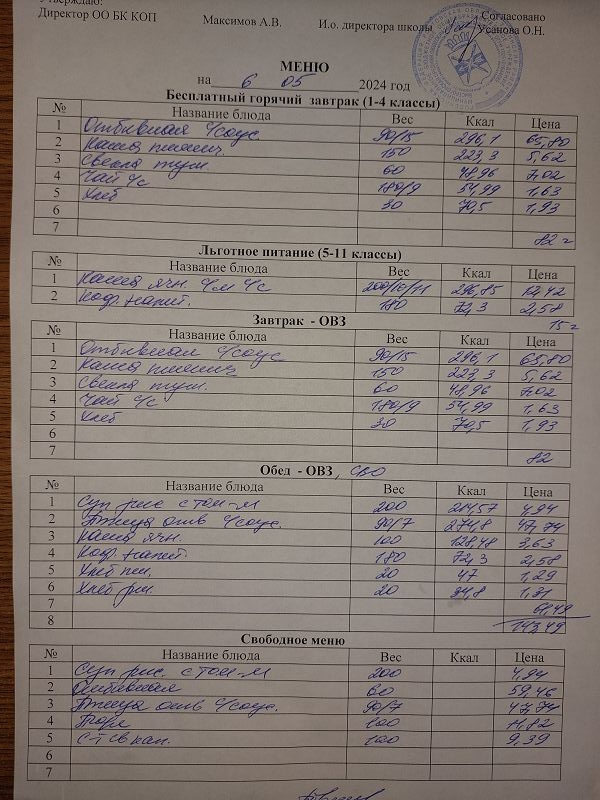 Утверждаю:
Директор ОО БК КОП Максимов А.В. И.о. директора школы Согласовано Усанова О.Н.
МЕНЮ
на 6 05 2024 год
Бесплатный горячий завтрак (1-4 классы)
№ Название блюда Вес Ккал Цена
1 Отбивная ч/соус 90/15 296,1 65,80
2 Каша пшенич 150 223,3 5,62
3 Свекла туш. 60 48,96 7,02
4 Чай ч/с 180/9 54,99 1,63
5 Хлеб 30 70,5 1,93
6
7 82
Льготное питание (5-11 классы)
№ Название блюда Вес Ккал Цена
1 Каша ячн. ч/м ч/с 296,85 12,42
2 Коф. напит. 180 72,3 2,58
15
Завтрак - ОВЗ
№ Название блюда Вес Ккал Цена
1 Отбивная ч/соус 90/15 296,1 65,80
2 Каша пшенич 150 223,3 5,62
3 Свекла туш. 60 48,96 7,02
4 Чай ч/с 180/9 54,99 1,63
5 Хлеб 30 70,5 1,93
6
7 82
Обед - ОВЗ, СВО
№ Название блюда Вес Ккал Цена
1 Суп рис с том-м 200 214,57 4,94
2 Птица отв ч/соус. 90/7 274,8 47,74
3 Каша ячн. 100 128,48 3,63
4 Коф. напит. 180 72,3 2,58
5 Хлеб пш. 20 47 1,29
6 Хлеб рж. 20 34,8 1,31
7 61,49
8 143,49
Свободное меню
№ Название блюда Вес Ккал Цена
1 Суп рис. с том-м 200 4,94
2 Отбивная 60 59,46
3 Птица отв ч/соус. 90/7 47,74
4 Пюре 100 11,82
5 100 9,39
6
7